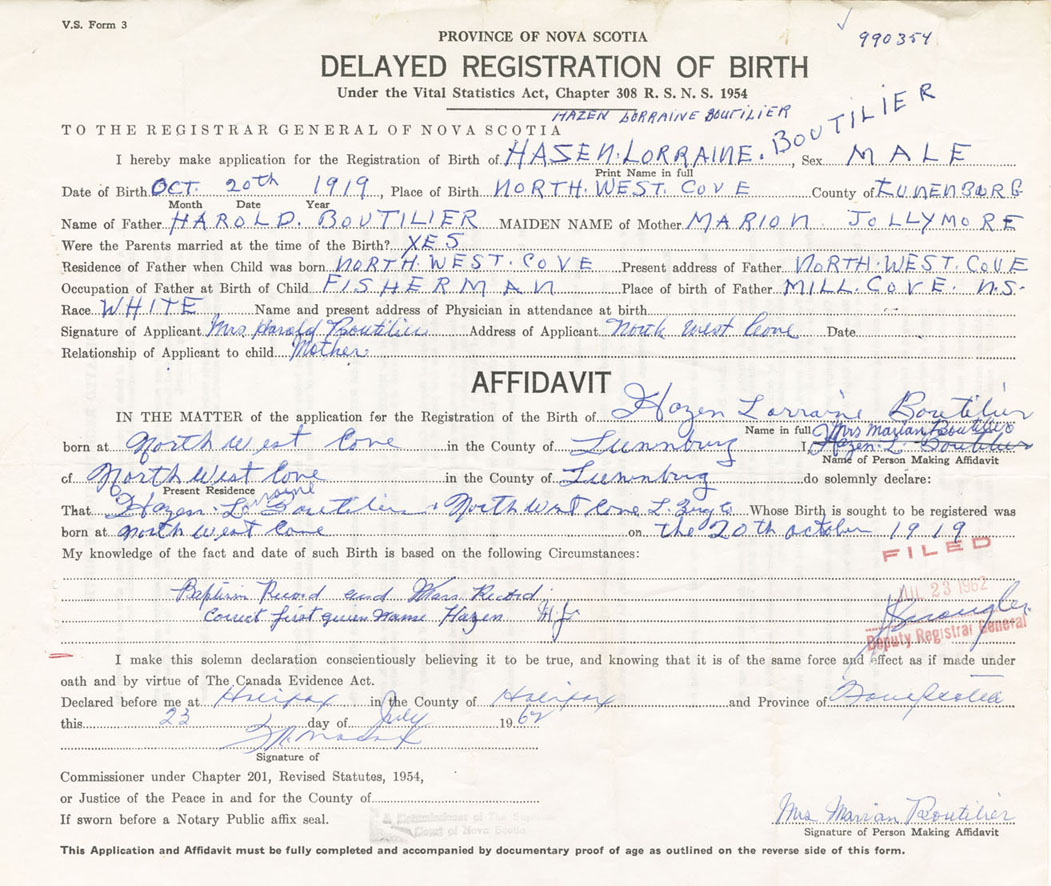 V.S. Form 3
990354
PROVINCE OF NOVA SCOTIA
DELAYED REGISTRATION OF BIRTH
Under the Vital Statistics Act, Chapter 308 R. S. N. S. 1954
HAZEN LORRAINE BOUTILIER
TO THE REGISTRAR GENERAL OF NOVA SCOTIA
I hereby make application for the Registration of Birth of HASEN. LORRAINE. BOUTILIER, Sex MALE
Print Name in full
Date of Birth OCT. 20th 1919, Place of Birth NORTH. WEST. COVE County of LUNENBURG
Month Date Year
Name of Father HAROLD. BOUTILIER MAIDEN NAME of Mother MARION JOLLYMORE
Were the Parents married at the time of the Birth? YES
Residence of Father when Child was born NORTH. WEST. COVE Present address of Father NORTH. WEST. COVE
Occupation of Father at Birth of Child FISHERMAN Place of birth of Father MILL. COVE. N.S.
Race WHITE Name and present address of Physician in attendance at birth
Signature of Applicant Mrs Harold Boutilier Address of Applicant North West Cove Date
Relationship of Applicant to child Mother
AFFIDAVIT
IN THE MATTER of the application for the Registration of the Birth of Hazen Lorraine Boutilier
Name in full Mrs Marian Boutilier
born at North west Cove in the County of Lunnburg I, Hazen. L. Boutilier
Name of Person Making Affidavit
of North West Cove in the County of Lunnburg do solemnly declare:
Present Residence
That Hazen. Lorraine Boutilier North West Cove L. Whose Birth is sought to be registered was
born at North West Cove on the 20th october 1919
My knowledge of the fact and date of such Birth is based on the following Circumstances:
FILED
Baptism Record and Record.
JUL 23 1962
Correct first given name Hazen
Deputy Registrar General
I make this solemn declaration conscientiously believing it to be true, and knowing that it is of the same force and effect as if made under
oath and by virtue of The Canada Evidence Act.
Declared before me at Halifax in the County of Halifax and Province of Nova Scotia
this 23 day of July 1962
Signature of
Commissioner under Chapter 201, Revised Statutes, 1954,
or Justice of the Peace in and for the County of
If sworn before a Notary Public affix seal.
A Commissioner of The Supreme
Court of Nova Scotia
Mrs Marian Boutilier
Signature of Person Making Affidavit
This Application and Affidavit must be fully completed and accompanied by documentary proof of age as outlined on the reverse side of this form.